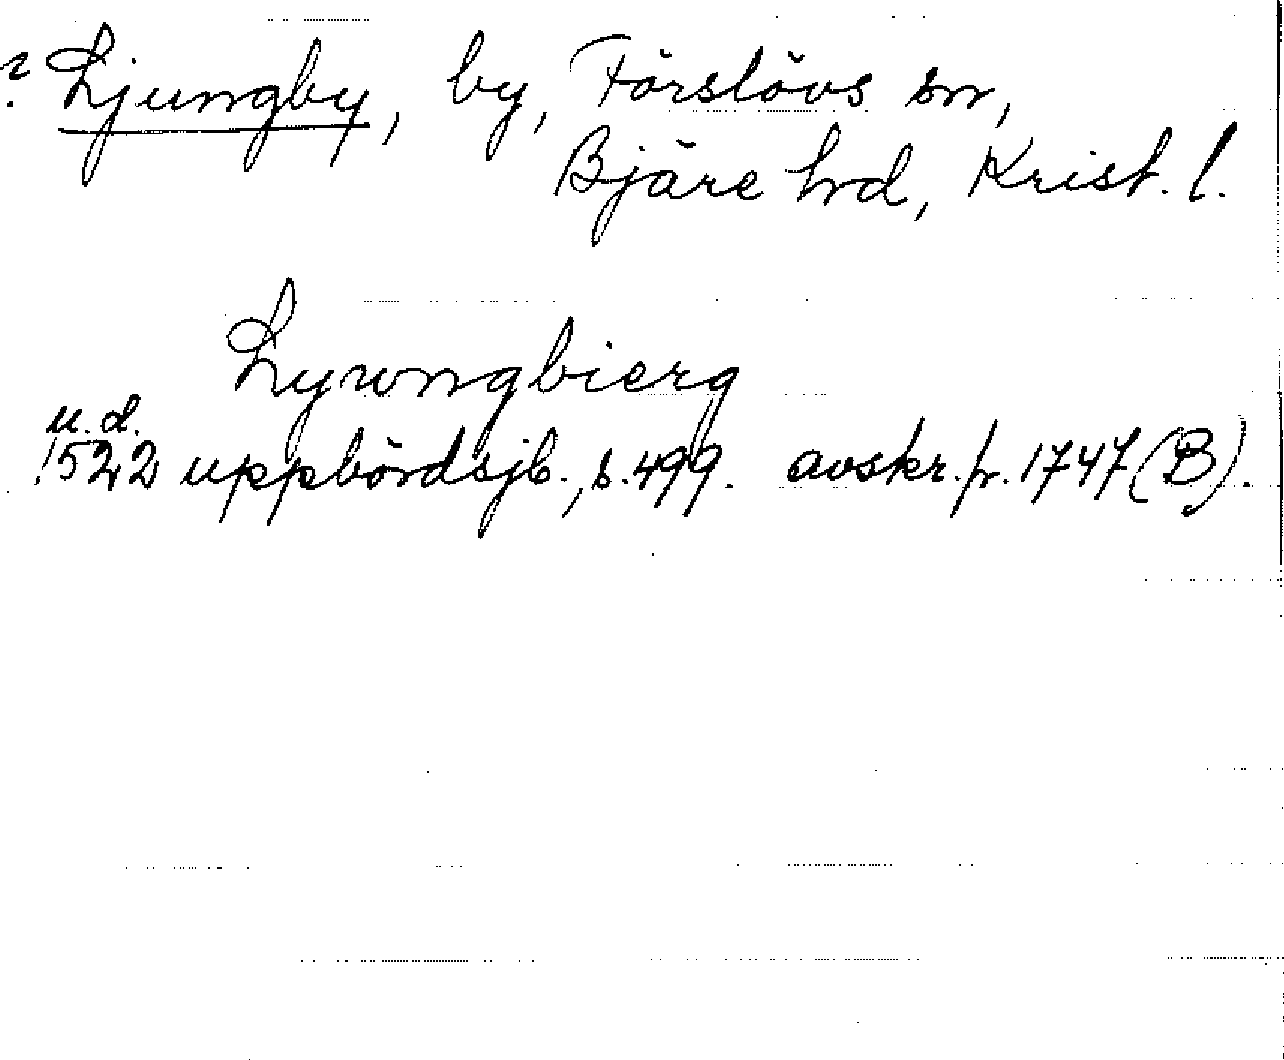 ? Ljungby, by, Förslövs sn,
Bjäre hd, Krist. l.
Lywngbierg
u. d.
1522 uppbördsjb., s. 499. avskr. fr. 1747 (B).